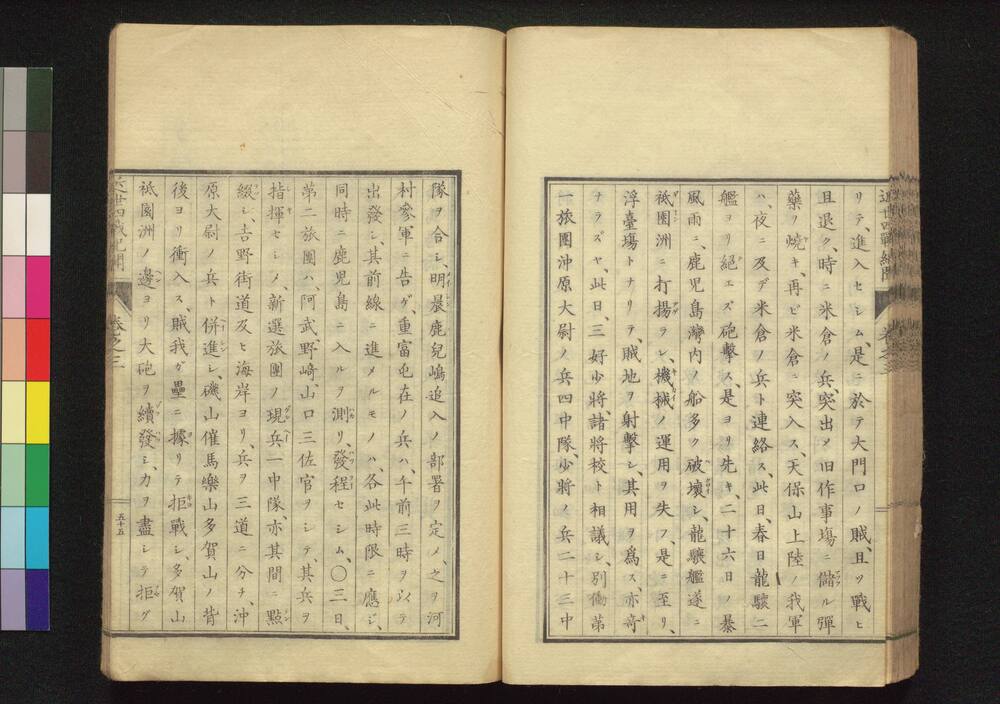 リテ、進入セシム、是ニ於テ大門口ノ賊、且ツ戰ヒ
且退ク、時ニ米倉ノ兵、突出シ旧作事塲ニ儲ル彈
藥ヲ燒キ、再ビ米倉ニ突入ス、天保山上陸ノ我軍
ハ、夜ニ及デ米倉ノ兵ト連絡ス、此日、春日龍驤二
艦ヨリ絕エズ砲擊ス、是ヨリ先キ、二十六日ノ暴
風雨ニ、鹿児島灣内ノ船多ク破壞シ、龍驤艦遂ニ
祗園洲ニ打揚ラレ、機械ノ運用ヲ失フ、是ニ至リ、
浮臺塲トナリテ、賊地ヲ射擊シ、其用ヲ爲ス、亦竒
ナラズヤ、此日、三好少將、諸將校ト相議シ、別働苐
一旅團沖原大尉ノ兵四中隊、少將ノ兵二十三中
隊ヲ合シ、明晨鹿兒嶋追入ノ部署ヲ定メ、之ヲ河
村參軍ニ告ゲ、重富屯在ノ兵ハ、午前三時ヲ以テ
出發シ、其前線ニ進メルモノハ、各此時限ニ應ジ、
同時ニ鹿児島ニ入ルヲ測リ、發程セシム、〇三日、
苐二旅團ハ、阿武、野崎、山口三佐官ヲシテ、其兵ヲ
指揮セシメ、新選旅團ノ現兵一中隊、亦其間ニ點
綴シ、吉野街道及ヒ海岸ヨリ、兵ヲ三道ニ分チ、沖
原大尉ノ兵ト併進シ、磯山催馬樂山多賀山ノ背
後ヨリ衝入ス、賊我ガ壘ニ據リテ拒戰シ、多賀山
祗園洲ノ邊ヨリ大砲ヲ續發シ、力ヲ盡シテ拒グ
卷之三
五十五